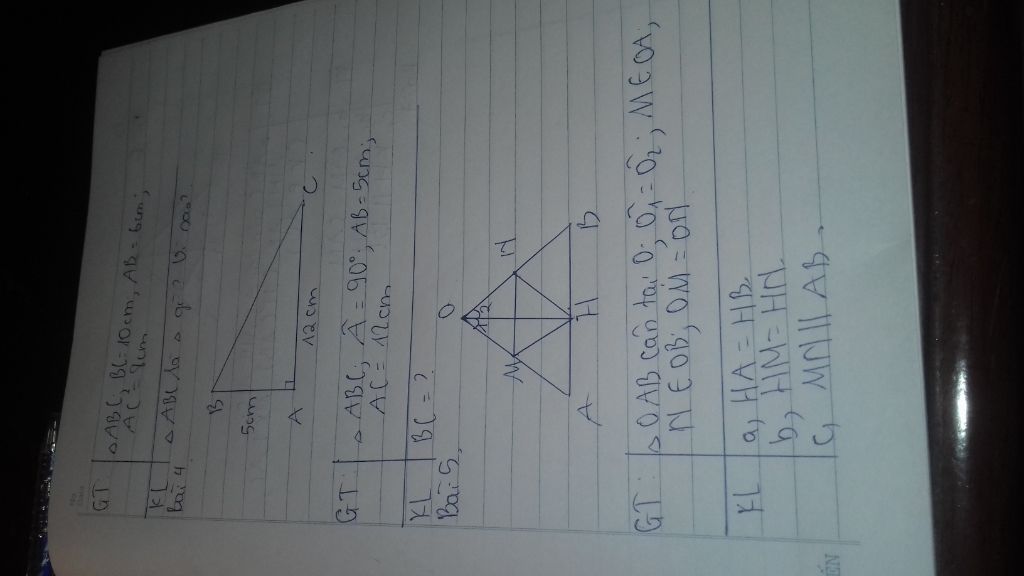 GT: △ABC, BC = 10cm, AB = 6cm;
AC = 8cm
KL △ABC là △ gì? Vì sao?
Bài 4.
B
5cm
A
12cm
C
GT: △ABC, Â = 90°, AB = 5cm;
AC = 12cm
KL BC = ?
Bài 5,
O
1 2
M N
A H B
GT: △OAB cân tại O. Ô₁ = Ô₂; M ∈ OA;
N ∈ OB, OM = ON
KL a, HA = HB.
b, HM = HN.
c, MN || AB.